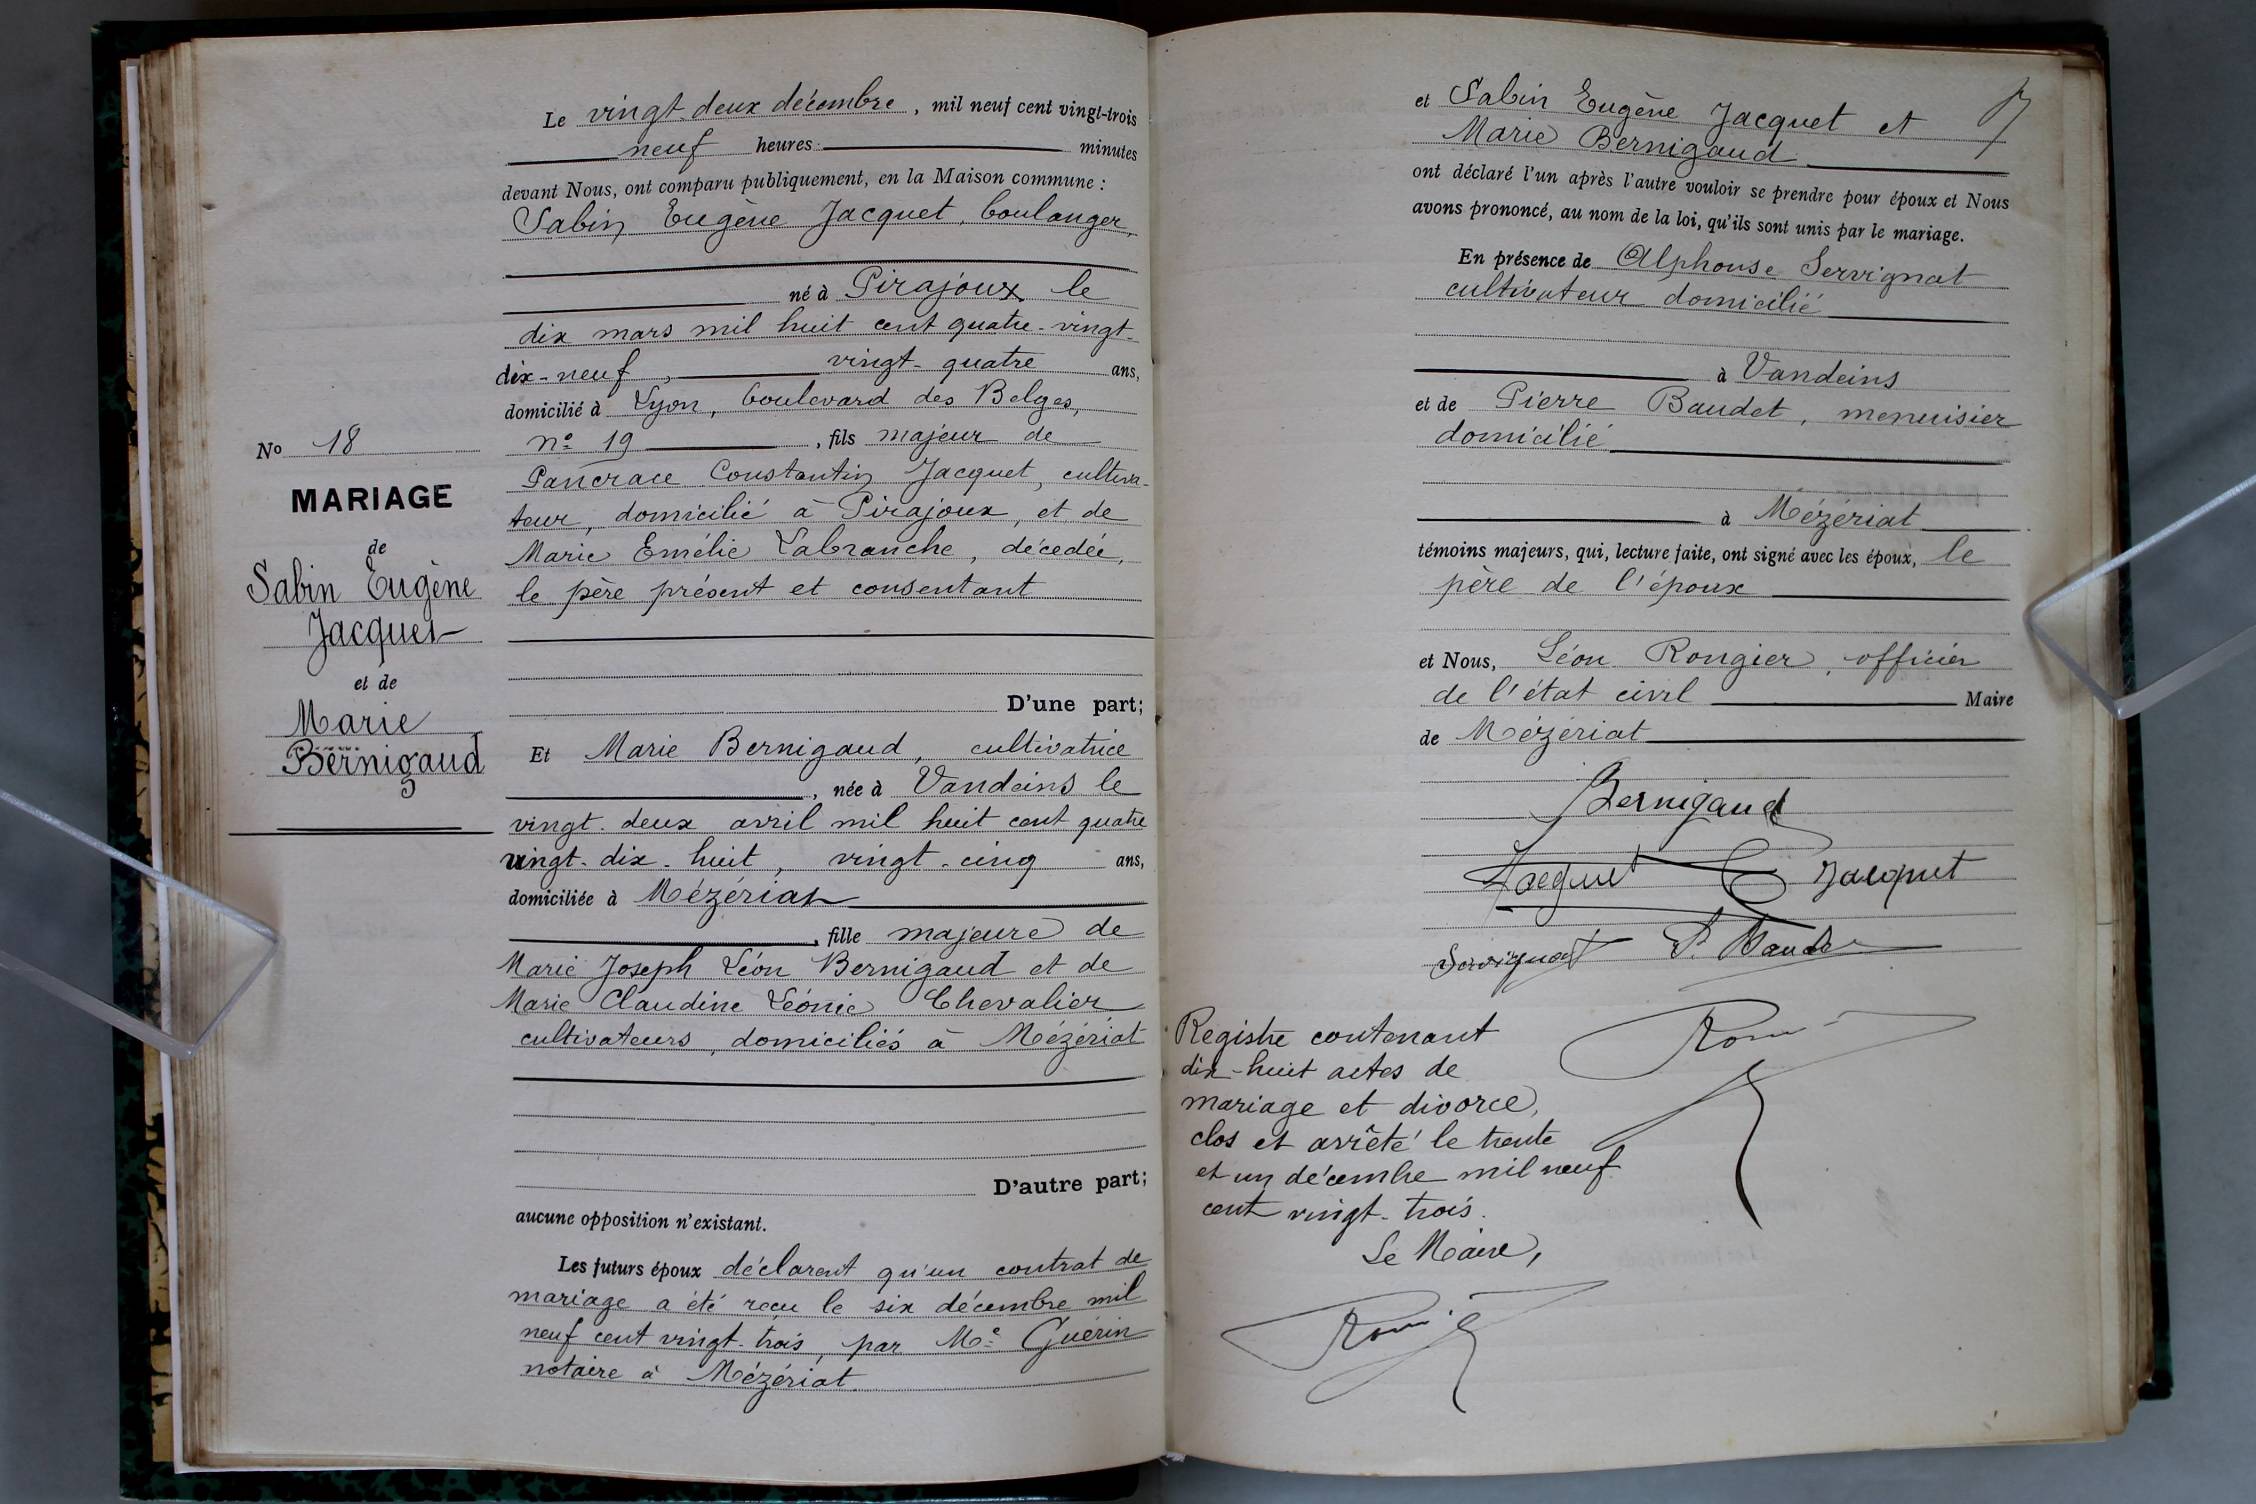 Le vingt-deux décembre, mil neuf cent vingt-trois
neuf heures minutes
devant Nous, ont comparu publiquement, en la Maison commune :
Sabin Eugène Jacquet, boulanger,
né à Pirajoux le
dix mars mil huit cent quatre-vingt-
dix-neuf, vingt-quatre ans,
domicilié à Lyon, boulevard des Belges,
n° 19, fils majeur de
Pancrace Constantin Jacquet, cultiva-
teur, domicilié à Pirajoux, et de
Marie Emélie Labranche, décedée,
le père présent et consentant
D'une part;
Et Marie Bernigaud, cultivatrice
, née à Vandeins le
vingt-deux avril mil huit cent quatre
vingt-dix-huit, vingt-cinq ans,
domiciliée à Mézériat
, fille majeure de
Marie Joseph Léon Bernigaud et de
Marie Claudine Léonie Chevalier
cultivateurs, domiciliés à Mézériat
D'autre part;
aucune opposition n'existant.
Les futurs époux déclarent qu'un contrat de
mariage a été reçu le six décembre mil
neuf cent vingt-trois, par Me Guérin
notaire à Mézériat.
No 18
MARIAGE
de
Sabin Eugène
Jacquet
et de
Marie
Bernigaud
et Sabin Eugène Jacquet et
Marie Bernigaud
ont déclaré l'un après l'autre vouloir se prendre pour époux et Nous
avons prononcé, au nom de la loi, qu'ils sont unis par le mariage.
En présence de Alphonse Servignat
cultivateur domicilié
à Vandeins
et de Pierre Baudet, menuisier
domicilié
à Mézériat
témoins majeurs, qui, lecture faite, ont signé avec les époux, le
père de l'époux
et Nous, Léon Rongier, officier
de l'état civil Maire
de Mézériat
Bernigaud
Jacquet E Jacquet
Servignat P. Baudet
Registre contenant
dix-huit actes de
mariage et divorce,
clos et arrêté le trente
et un décembre mil neuf
cent vingt-trois.
Le Maire,